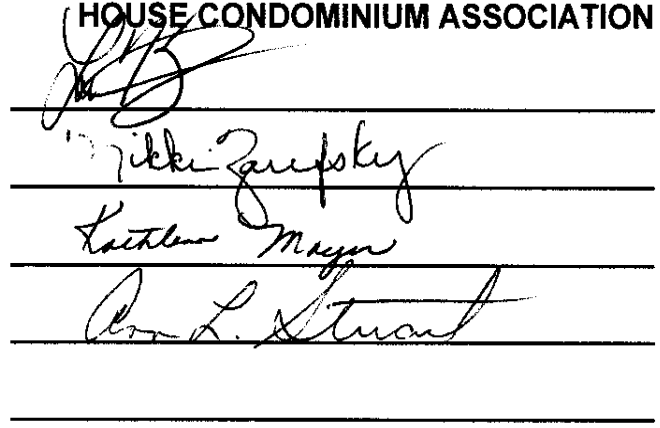 HOUSE CONDOMINIUM ASSOCIATION
Nikki Zarefsky
Kathleen Mayer
Ann L. Stuart